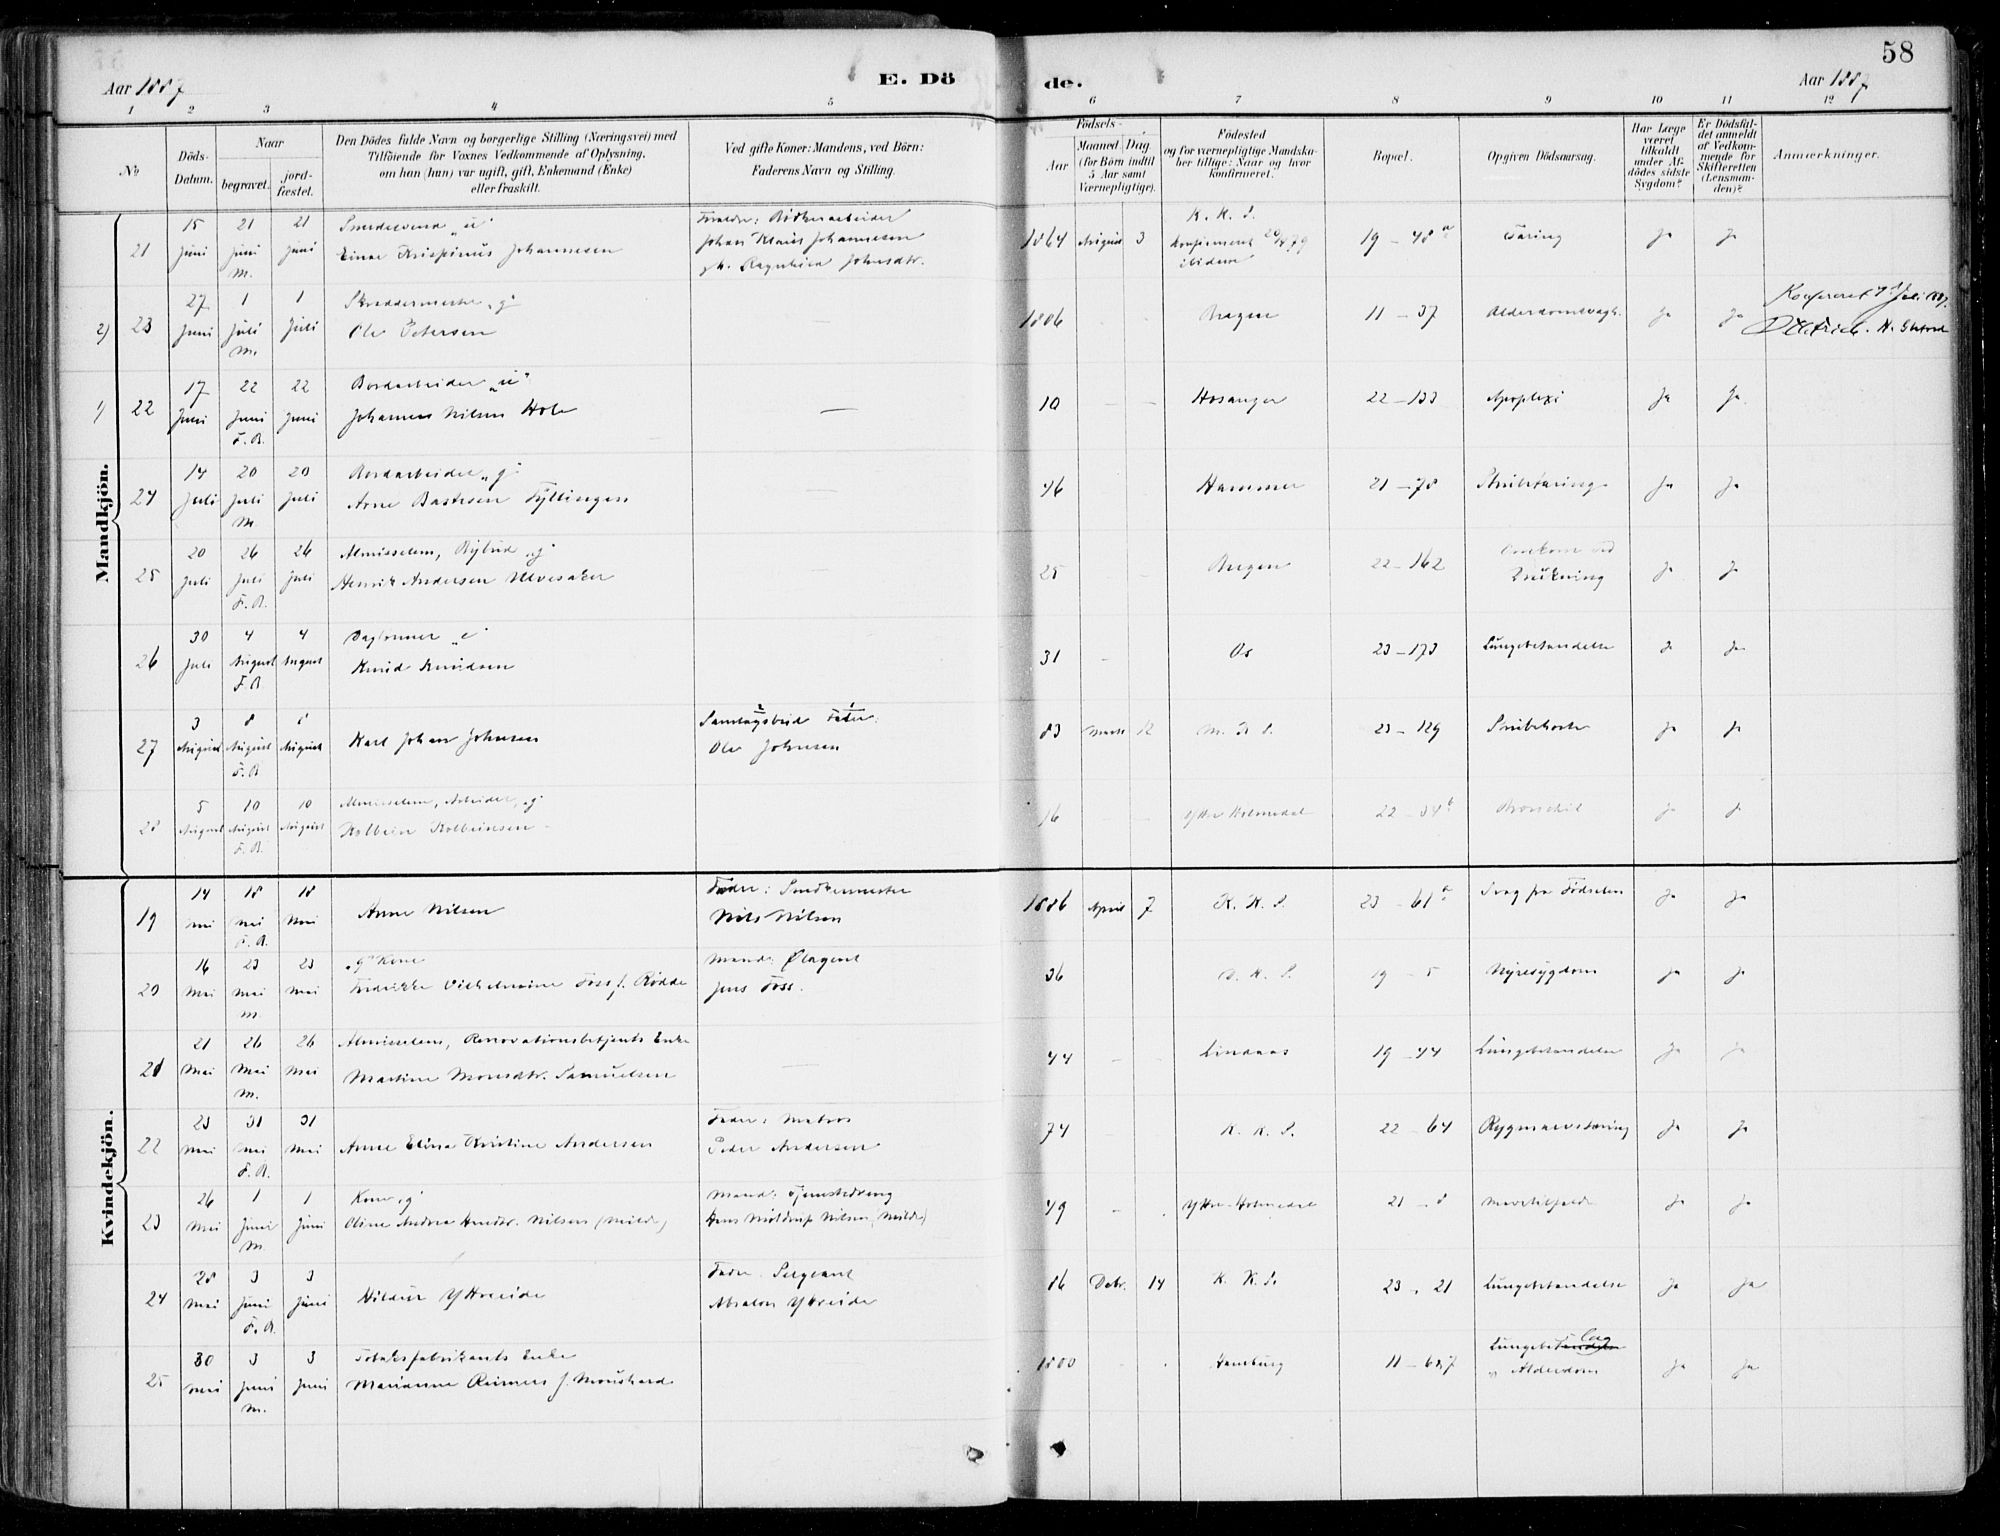 58
Aar 1887
E. Dö
de.
Aar 1887
1 2 3 4 5 6 7 8 9 10 11 12
No
Döds-Datum.
Naar
begravet.
jord-fæstet.
Den Dödes fulde Navn og borgerlige Stilling (Næringsvei) med
Tilföiende for Voxnes Vedkommende af Oplysning.
om han (hun) var ugift, gift, Enkemand (Enke)
eller fraskilt.
Ved gifte Koner: Mandens, ved Börn:
Faderens Navn og Stilling.
Födsels-
Aar
Maaned Dag
(for Börn indtil
5 Aar samt
Værnepligtige).
Födested
og for værnepligtige Mandska-
ber tillige: Naar og hvor
konfirmeret.
Bopæl.
Opgiven Dödsaarsag.
Har Læge
været
tilkaldt
under Af-
dödes sidste
Sygdom?
Er Dödsfal-
det anmeldt
af Vedkom-
mende for
Skifteretten
(Lensman-
den)?
Anmærkninger.
Mandkjön.
21 15 Juni 21 Juni M. 21 Juni
Smedesvend „u"
Einar Krispinus Johannesen
Johan Klaus Johannesen
1864 August 3
K. K. S.
konfirmeret 79
ibidem
19 – 48 a
Tæring
Ja Ja
2) 23 27 Juni 1 Juli M. 1 Juli
Skræddermester „g"
Ole Petersen
1806 - - Bergen 11 – 37 Ja Ja
1) 22 17 Juni 22 Juni F.B. 22 Juni
Bordarbeider „u"
Johannes Nilsen Hole
—
10 - - Hosanger 22 – 133 Apoplexi Ja Ja
24 14 Juli 20 Juli M 20 Juli
Bordarbeider „g"
Arne Bastesen Fyllingen
—
46 - - Hammer 21 – 78 Strubetæring Ja Ja
25 20 Juli 26 Juli F.B. 26 Juli
Almisselem, Bybud „g"
Henrik Andersen Ulvesaker
25 Bergen 22 – 162 Omkom ved
Drukning Ja Ja
26 30 Juli 4 August F.B 4 August
Daglönner „e"
Knud Knudsen
31 - Os 23 – 173 Lungebetændelse Ja Ja
27 3 August 8 August F.B 8 August
Karl Johan Johnsen
Samlagsbud Fader:
Ole Johnsen
83 Marts 12 M. K S. 23 – 129 Strubehoste Ja Ja
28 5 August 10 August F.B. 10 August
Almisselem, Arbeider, „g"
Kolbein Kolbeinsen
16 - - Ytre Holmedal 22 – 34 b Bronchit Ja Ja
Kvindekjön.
19 14 Mai 18 Mai F.B. 18 Mai
Anne Nilsen
Fader: Snedkermester
Nils Nilsen
1886 April 7 K. K. S. 23 – 61 a Svag fra Födselen Ja Ja
20 16 Mai 23 Mai M. 23 Mai
„g" Kone
Fredrikke Vilhelmine Foss f. Rödde
Mand: Ølagent
Jens Foss.
36 D. K. S. 19 – 5 Nyresygdom Ja Ja
21 21 Mai 26 Mai M. 26 Mai
Almisselem, Renovationsbetjents Enke
Martine Monsdtr. Samuelsen
—
44 - - Lindaas 19 – 44 Lungebetændelse Ja Ja
22 23 Mai 31 Mai F.B. 31 Mai
Anne Elina Kristine Andersen
Fader: Matros
Peder Andersen
74 K. K. S. 22 – 64 Rygmarvstæring Ja Ja
23 26 Mai 1 Juni M. 1 Juni
Kone „g"
Oline Andrea Nilsen (Milde)
Mand:
Hans Nilsen (Milde)
49 - Ytre-Holmedal 21 – 8 Ja Ja
24 28 Mai 3 Juni F.B. 3 Juni
Hildur Ytreeide
Fader: Sergeant
Absalon Ytreeide
86 Decbr. 14 K. K. S. 23 – 21 Lungebetændelse Ja Ja
25 30 Mai 3 Juni M. 3 Juni
Tobaksfabrikants Enke
Marianne Reimers f.
1800 - Hamburg 11 – 687
Alderdom Ja Ja